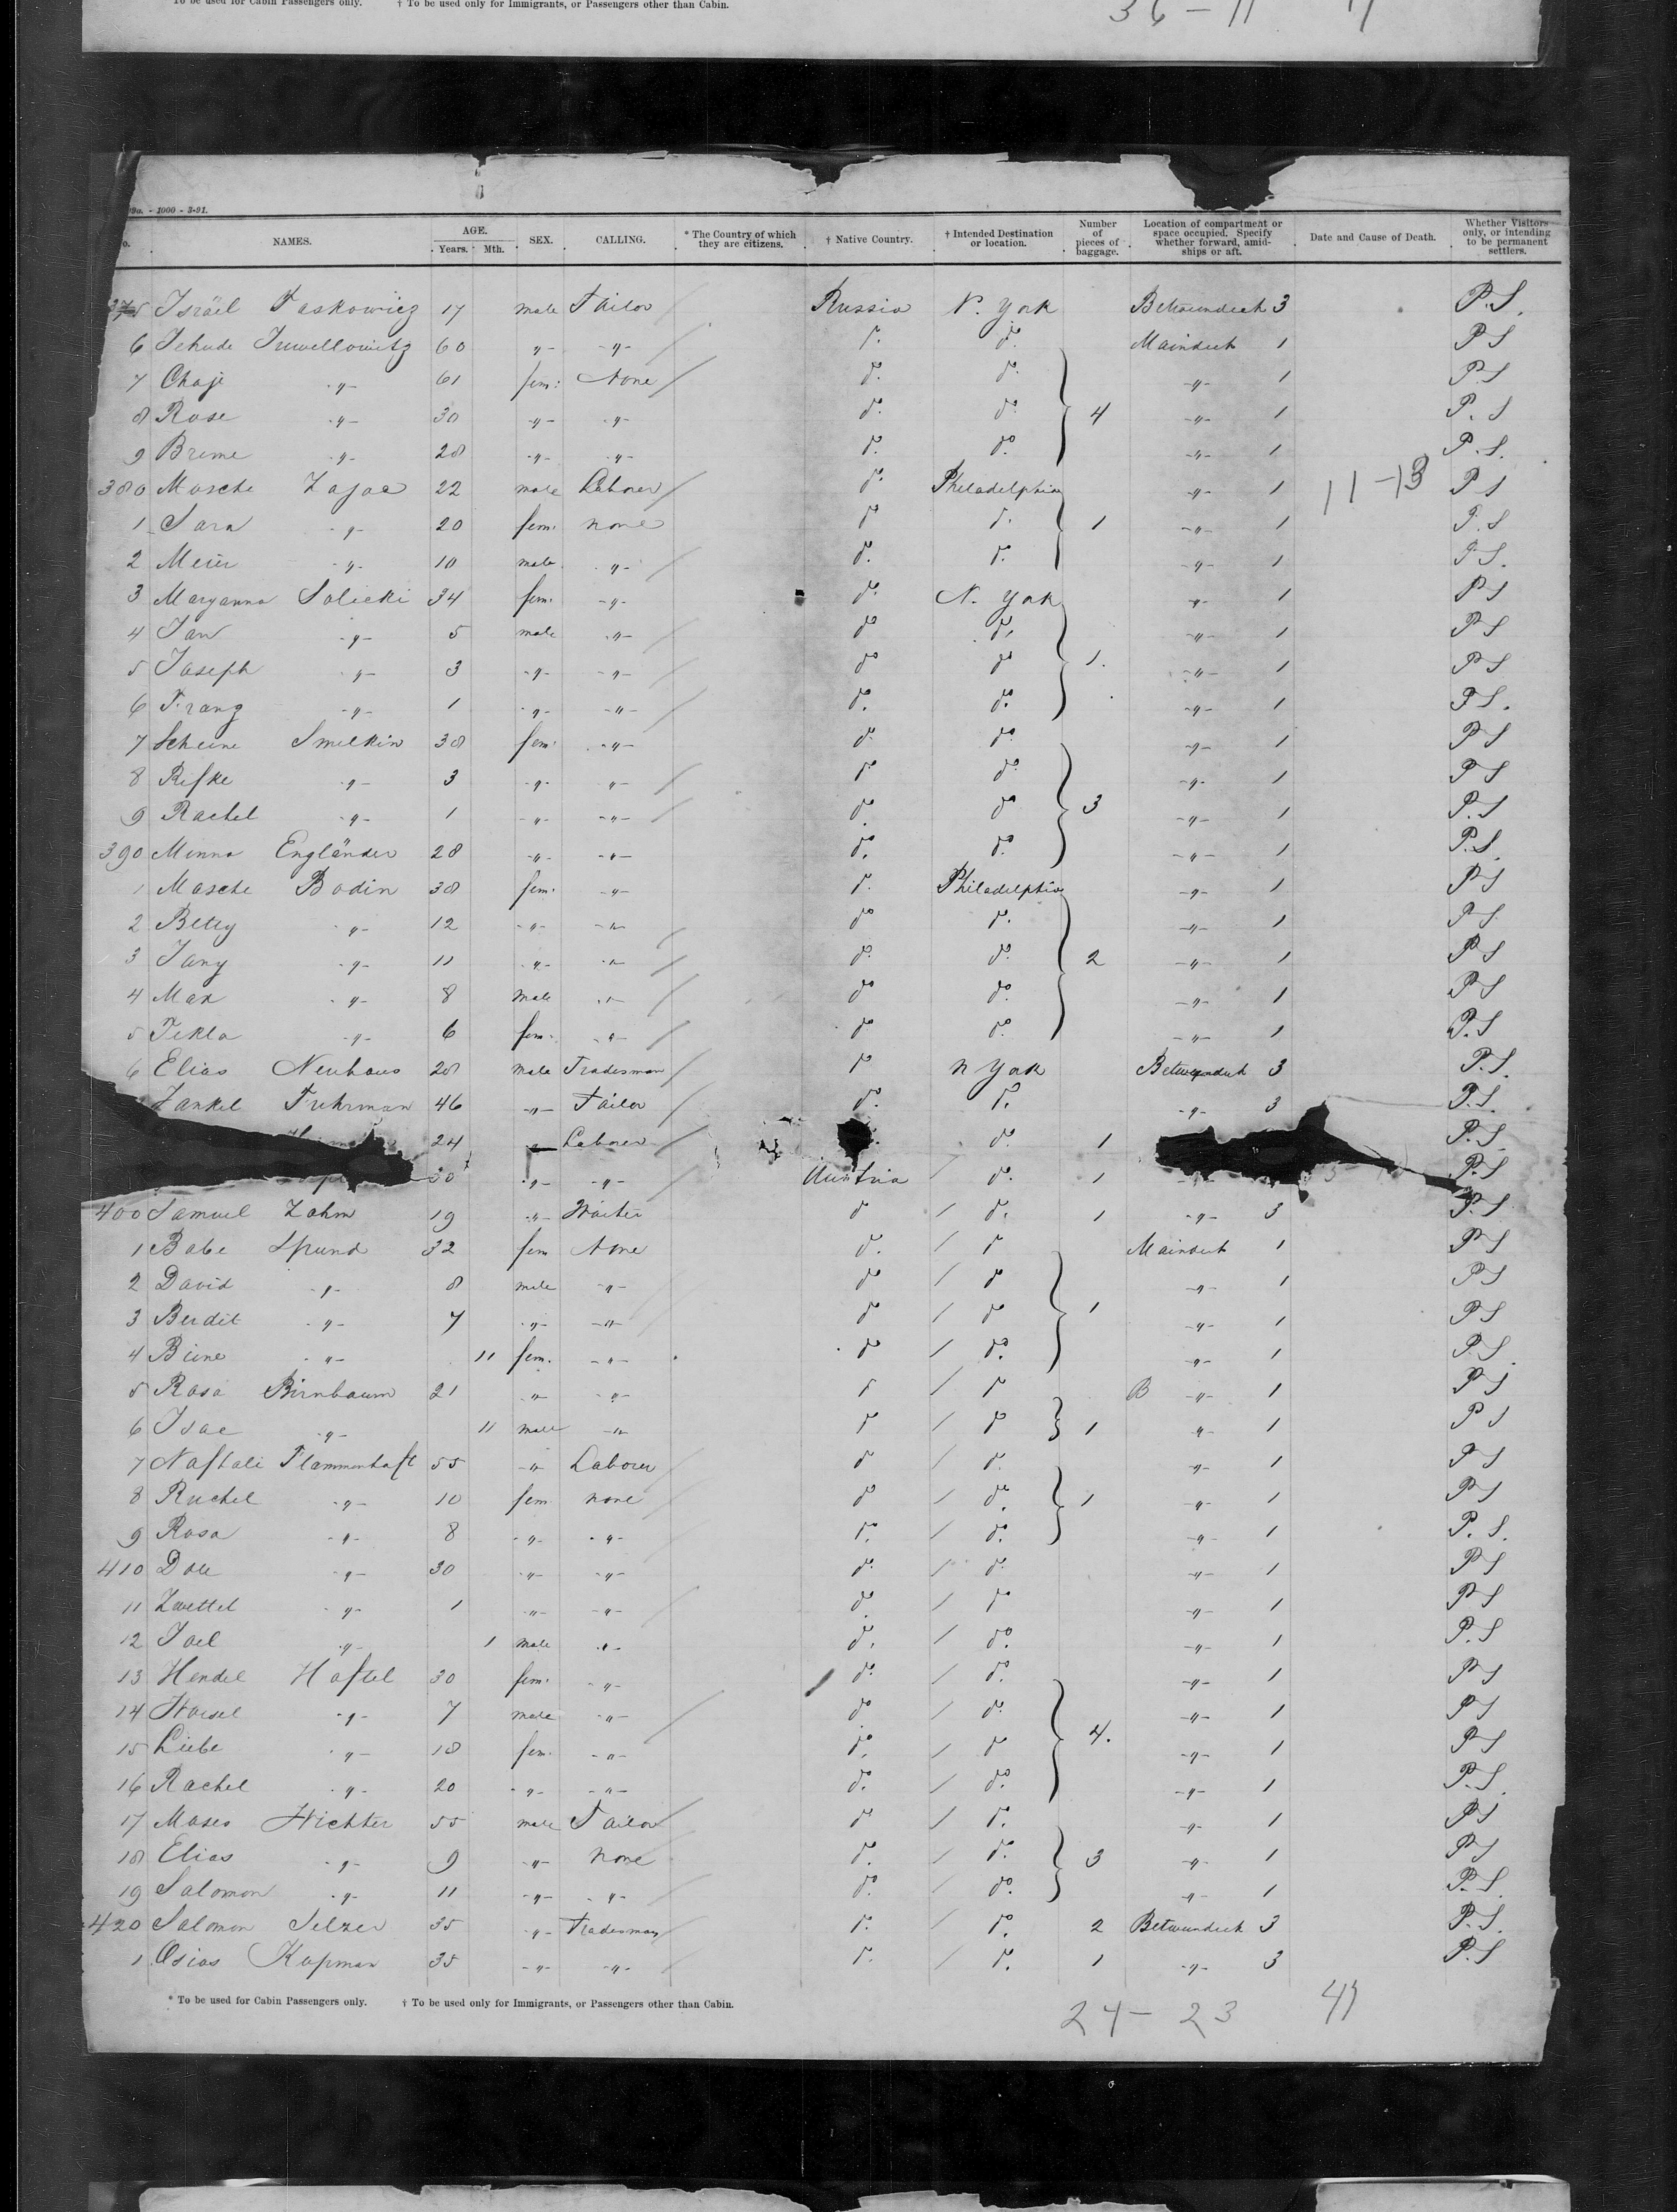 To be used for Cabin Passengers only. † To be used only for Immigrants, or Passengers other than Cabin.
36 - 11
- 1000 - 3-91.
NAMES. AGE. Years. Mth. SEX. CALLING. * The Country of which they are citizens. † Native Country. † Intended Destination or location. Number of pieces of baggage. Location of compartment or space occupied. Specify whether forward, amid-ships or aft. Date and Cause of Death. Whether Visitors only, or intending to be permanent settlers.
375 Israël Taskowicz 17 male Tailor Russia N. York Betweendeck 3 P.S.
6 Jehude Juwellowitz 60 -"- -"- do do Maindeck 1 P S
7 Chaje -"- 61 fem: None do do -"- 1 P.S
8 Rose -"- 30 -"- -"- do do 4 -"- 1 P. S
9 Breine -"- 28 -"- -"- do do -"- 1 P.S.
380 Mosche Zajac 22 male Laborer do Philadelphia -"- 1 11-13 P S
1 Sara -"- 20 fem: none do do 1 -"- 1 P.S
2 Meier -"- 10 male -"- do do -"- 1 P S.
3 Maryanna Solicki 34 fem: -"- do N. York -"- 1 P S
4 Jan -"- 5 male -"- do do -"- 1 P S
5 Joseph -"- 3 -"- -"- do do 1. -"- 1 P S
6 Franz -"- 1 -"- -"- do do -"- 1 P S.
7 Scheine Smelkin 38 fem: -"- do do -"- 1 P S
8 Rifke -"- 3 -"- -"- do do -"- 1 P S
9 Rachel -"- 1 -"- -"- do do 3 -"- 1 P.S
390 Minna Engländer 28 -"- -"- do do -"- 1 P.S.
1 Masche Bodin 38 fem: -"- do Philadelphia -"- 1 P S
2 Betty -"- 12 -"- -"- do do -"- 1 P S
3 Jany -"- 11 -"- -"- do do 2 -"- 1 P S
4 Max -"- 8 male -"- do do -"- 1 P S
5 Tekla -"- 6 fem: -"- do do -"- 1 P.S
6 Elias Neuhaus 28 male Tradesman do N York Betweendeck 3 P.S.
Jankel Fuhrman 46 -"- Tailor do do -"- 3 P.S.
24 Laborer do 1 P.S.
30 -"- -"- Austria do 1 P.S
400 Samuel Zahn 19 -"- Waiter do do 1 -"- 3 P.S
1 Babe Spund 32 fem None do do Maindeck 1 P S
2 David -"- 8 male -"- do do -"- 1 P S
3 Berdit -"- 7 -"- -"- do do 1 -"- 1 P S
4 Biine -"- 11 fem. -"- do do -"- 1 P S.
5 Rosa Birnbaum 21 -"- -"- do do B -"- 1 P S
6 Isac -"- 11 male -"- do do 1 -"- 1 P S
7 Naftali Flammenhaft 55 -"- Laborer do do -"- 1 P S
8 Ruchel -"- 10 fem none do do 1 -"- 1 P S
9 Rosa -"- 8 -"- -"- do do -"- 1 P. S.
410 -"- 30 -"- -"- do do -"- 1 P S
11 Zwettel -"- 1 -"- -"- do do -"- 1 P S
12 Joel -"- 1 male -"- do do -"- 1 P.S
13 Hendel Haftel 30 fem: -"- do do -"- 1 P S
14 -"- 7 male -"- do do -"- 1 P S
15 Liebe -"- 18 fem: -"- do do 4. -"- 1 P S
16 Rachel -"- 20 -"- -"- do do -"- 1 P.S.
17 Moses Wichter 55 male Tailor do do -"- 1 P S
18 Elias -"- 9 -"- none do do 3 -"- 1 P S
19 Salomon -"- 11 -"- -"- do do -"- 1 P.S.
420 Salomon Selzer 35 -"- Tradesman do do 2 Betweendeck 3 P.S.
1 Osias Kopman 35 -"- -"- do do 1 -"- 3 P.S
* To be used for Cabin Passengers only. † To be used only for Immigrants, or Passengers other than Cabin.
24 - 23 47